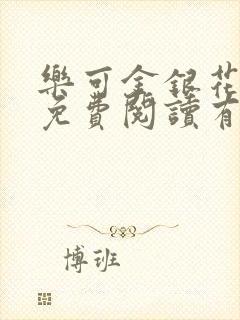 樂可金銀花
免費閱讀有
博班